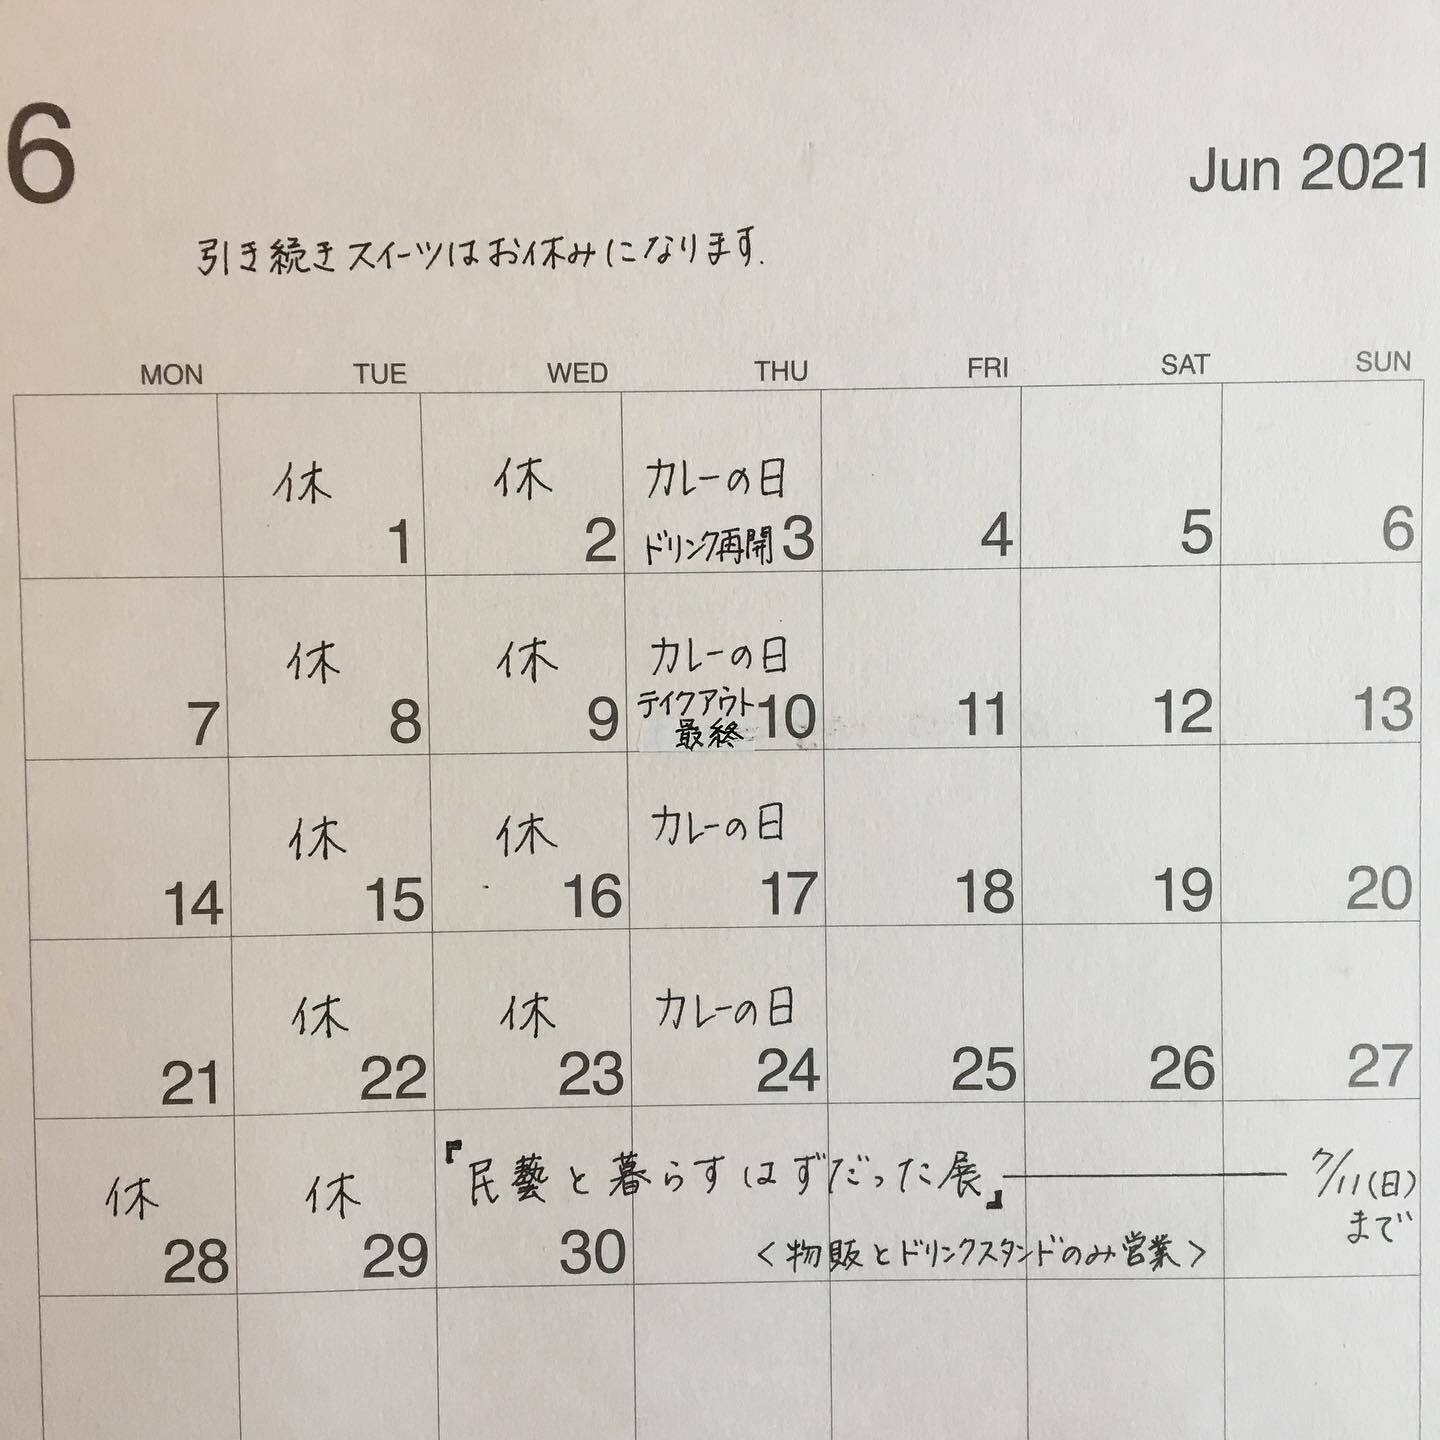 6
Jun 2021
引き続きスイーツはお休みになります.
MON TUE WED THU FRI SAT SUN
休 休 カレーの日
1 2 ドリンク再開 3 4 5 6
休 休 カレーの日
テイクアウト
7 8 9 最終 10 11 12 13
休 休 カレーの日
14 15 16 17 18 19 20
休 休 カレーの日
21 22 23 24 25 26 27
休 休 『民藝と暮らすはずだった展』 7/11(日)
まで
28 29 30 <物販とドリンクスタンドのみ営業>